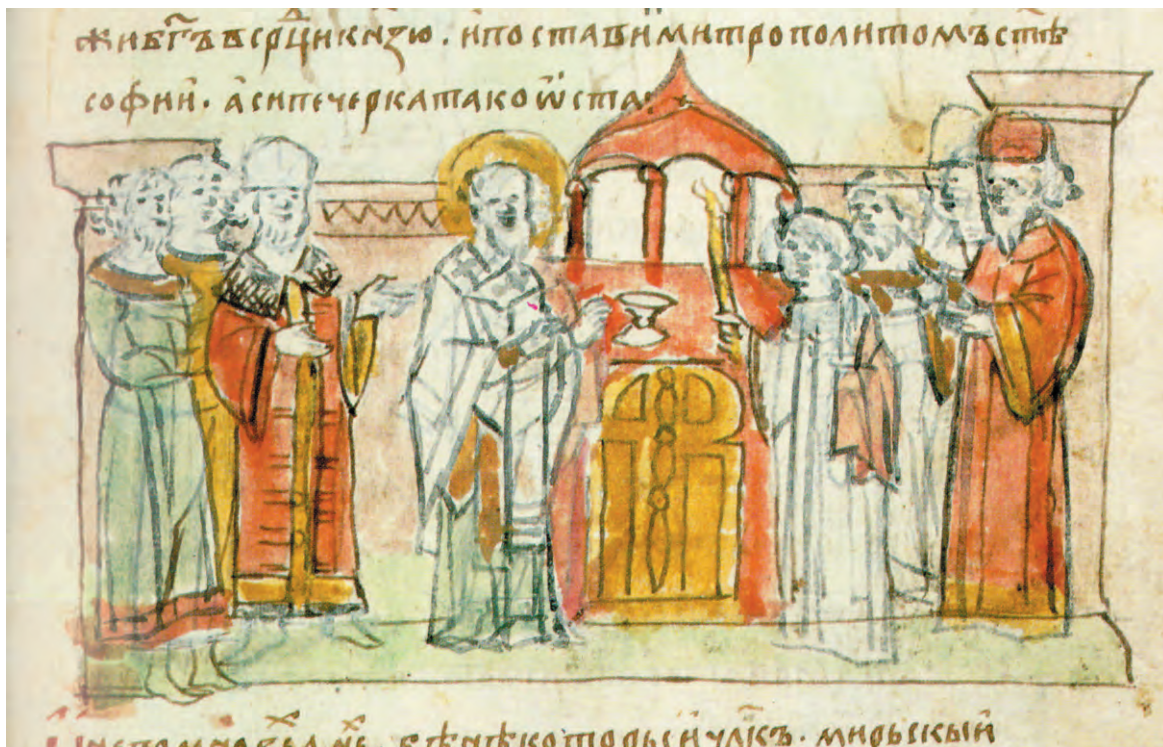 жи бг҃ъ в ср҃ци кнѧзю . и постави митрополитомъ ст҃ѣ
софии . а си печерка тако ѡста
бѣ нѣкоторыи чл҃къ . мирьскыи